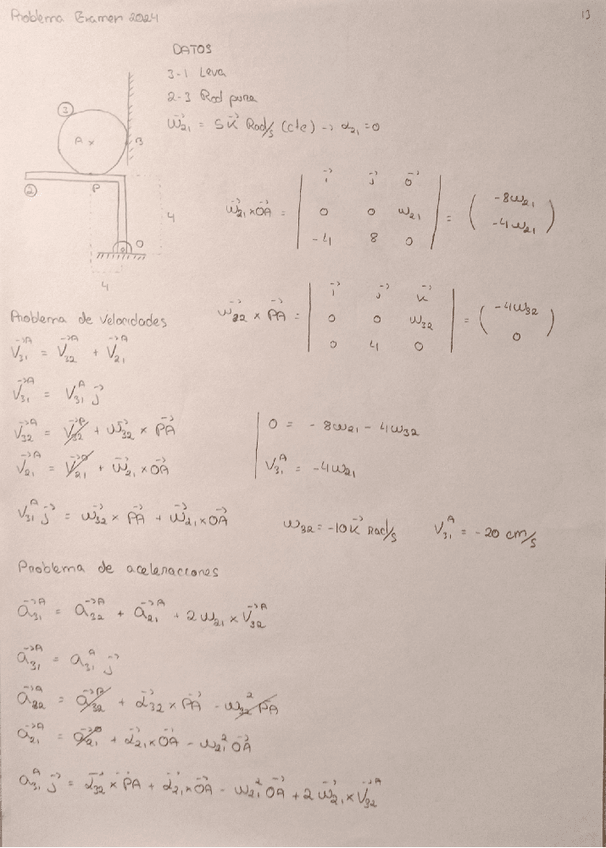 Problema Examen 2024
13
DATOS
3-1 Leva
2-3 Rod pura
ω⃗₂₁ = 5k⃗ Rad/s (cte) → α₂₁ = 0
③
A x
B
②
P
4
O
4
ω⃗₂₁ × O⃗A = | i⃗ j⃗ o⃗ | 0 0 ω₂₁ | -4 8 0 | = ( -8ω₂₁ -4ω₂₁ )
Problema de velocidades
ω⃗₃₂ × P⃗A = | i⃗ j⃗ k⃗ | 0 0 ω₃₂ | 0 4 0 | = ( -4ω₃₂ 0 )
V⃗₃₁ᴬ = V⃗₃₂ᴬ + V⃗₂₁ᴬ
V⃗₃₁ᴬ = V₃₁ᴬ j⃗
V⃗₃₂ᴬ = V⃗₃₂ᴾ + ω⃗₃₂ × P⃗A
0 = -8ω₂₁ - 4ω₃₂
V⃗₂₁ᴬ = V⃗₂₁ + ω⃗₂₁ × O⃗A
V₃₁ᴬ = -4ω₂₁
V₃₁ᴬ j⃗ = ω⃗₃₂ × P⃗A + ω⃗₂₁ × O⃗A
ω₃₂ = -10k⃗ Rad/s V₃₁ᴬ = -20 cm/s
Problema de aceleraciones
a⃗₃₁ᴬ = a⃗₃₂ᴬ + a⃗₂₁ᴬ + 2ω₂₁ × V⃗₃₂ᴬ
a⃗₃₁ᴬ = a₃₁ᴬ j⃗
a⃗₃₂ᴬ = a⃗₃₂ + α⃗₃₂ × P⃗A - ω₃₂² P⃗A
a⃗₂₁ᴬ = a⃗₂₁ + α⃗₂₁ × O⃗A - ω₂₁² O⃗A
a₃₁ᴬ j⃗ = α⃗₃₂ × P⃗A + α⃗₂₁ × O⃗A - ω₂₁² O⃗A + 2ω⃗₂₁ × V⃗₃₂ᴬ